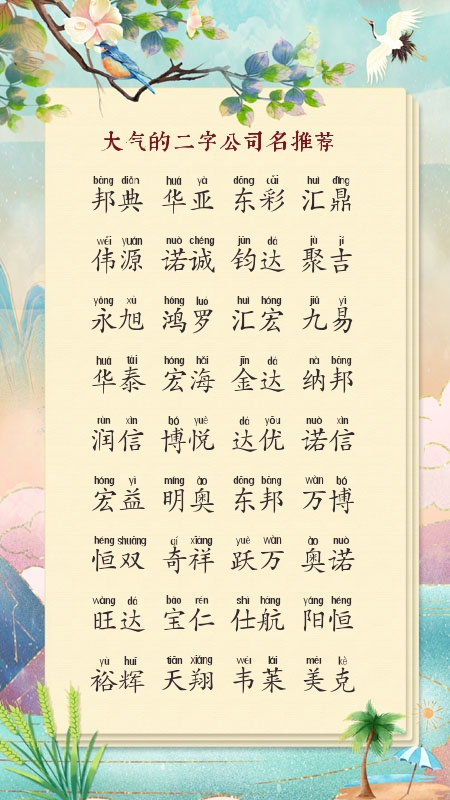 大气的二字公司名推荐
bāng diǎn huá yà dōng cǎi huì dǐng
邦典 华亚 东彩 汇鼎
wěi yuán nuò chéng jūn dá jù jí
伟源 诺诚 钧达 聚吉
yǒng xù hóng luó huì hóng jiǔ yì
永旭 鸿罗 汇宏 九易
huá tài hóng hǎi jīn dá nà bāng
华泰 宏海 金达 纳邦
rùn xìn bó yuè dá yōu nuò xìn
润信 博悦 达优 诺信
hóng yì míng ào dōng bāng wàn bó
宏益 明奥 东邦 万博
héng shuāng qí xiáng yuè wàn ào nuò
恒双 奇祥 跃万 奥诺
wàng dá bǎo rén shì háng yáng héng
旺达 宝仁 仕航 阳恒
yù huī tiān xiáng wéi lái měi kè
裕辉 天翔 韦莱 美克